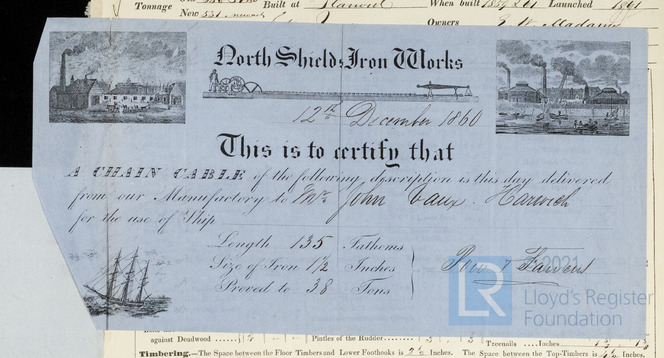 Tonnage
New 531
Built at
When built
Launched 1861
Owners
North Shields Iron Works
12th December 1860
This is to certify that
A CHAIN CABLE of the following description is this day delivered
from our Manufactory to Mr. John Vaux. Harwich
for the use of Ship
Length 135 Fathoms
Size of Iron 1½ Inches
Proved to 38 Tons
Pow & Fawcus
2021
LR
Lloyd's Register
Foundation
against Deadwood
Pintles of the Rudder
Treenails
Inches
Timbering.—The Space between the Floor Timbers and Lower Foothooks is 2½ Inches. The Space between the Top-Timbers is Inches.